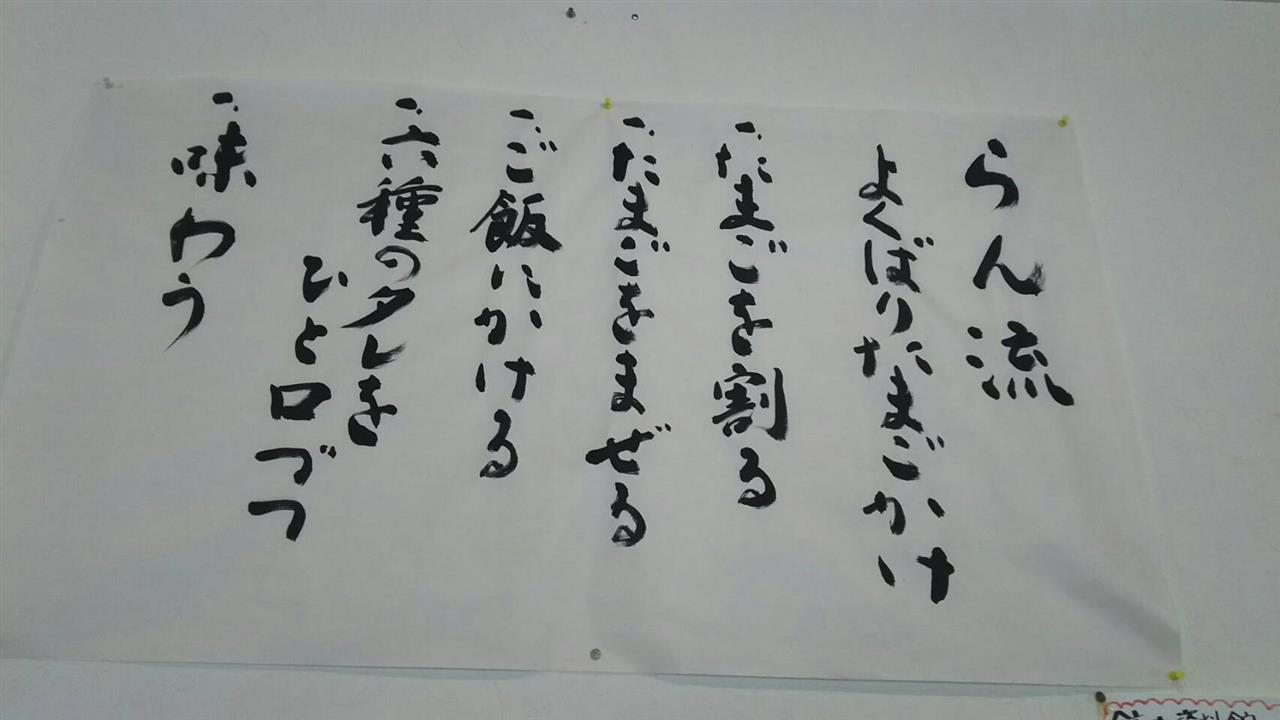 らん流
よくばりたまごかけ
一、たまごを割る
一、たまごをまぜる
一、ご飯にかける
一、六種のタレを
ひと口づつ
一、味わう